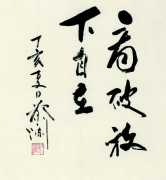 看破放
下自在
丁亥夏日